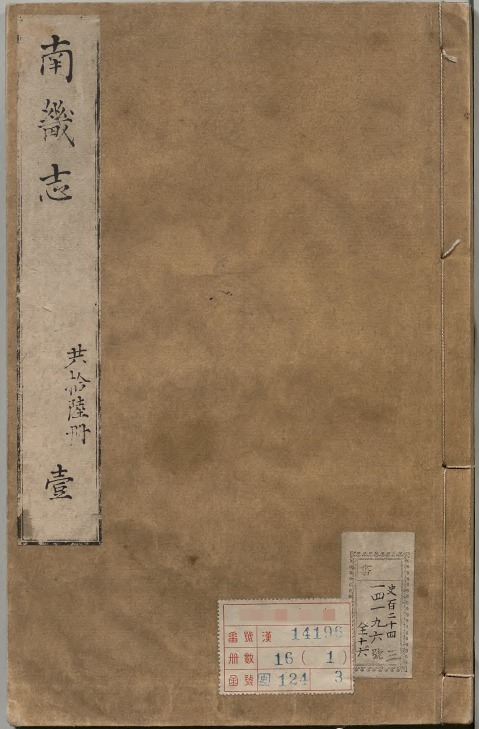 南畿志
共拾陸册
壹
史百二十四 三
一四一九六號
全十六
番號 漢 14196
册數 16 ( 1 )
函號 124 3